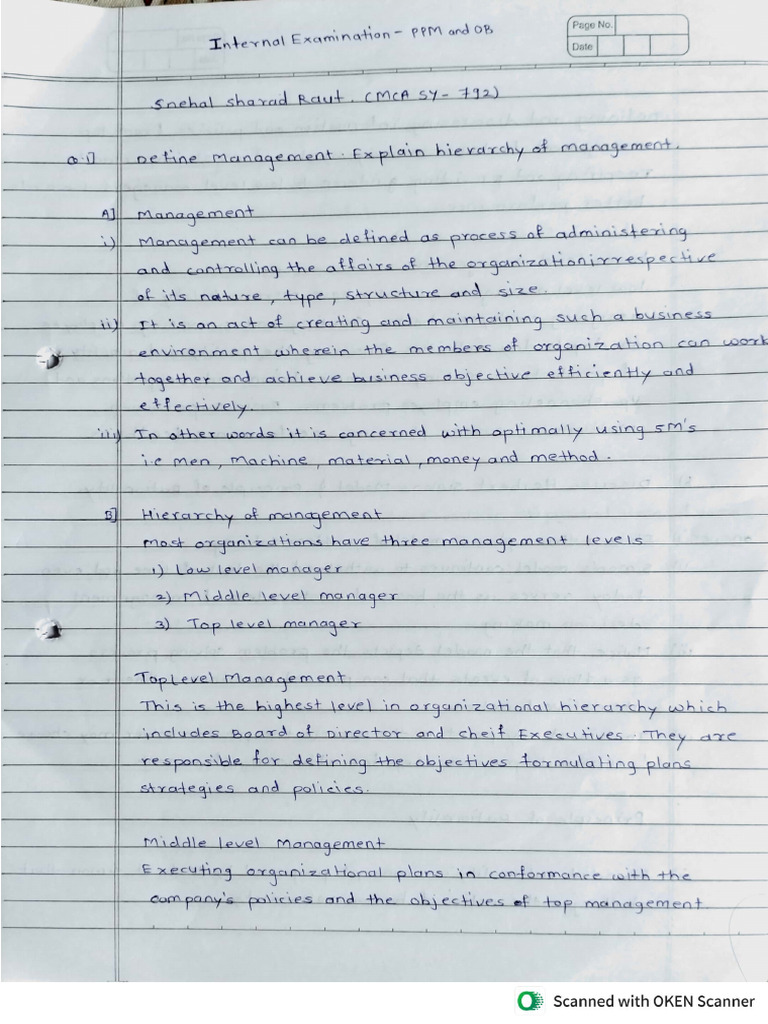 Internal Examination - PPM and OB
Page No.
Date
Snehal Sharad Raut. (MCA SY - 792)
Q.1] Define Management. Explain hierarchy of management.
A] Management
i) Management can be defined as process of administering
and controlling the affairs of the organization irrespective
of its nature, type, structure and size.
ii) It is an act of creating and maintaining such a business
environment wherein the members of organization can work
together and achieve business objective efficiently and
effectively.
iii) In other words it is concerned with optimally using 5M's
i.e men, machine, material, money and method.
B] Hierarchy of management
Most organizations have three management levels
1) Low level manager
2) Middle level manager
3) Top level manager
Top Level Management
This is the highest level in organizational hierarchy which
includes Board of Director and cheif Executives. They are
responsible for defining the objectives formulating plans
strategies and policies.
Middle level Management
Executing organizational plans in conformance with the
company's policies and the objectives of top management.
Scanned with OKEN Scanner